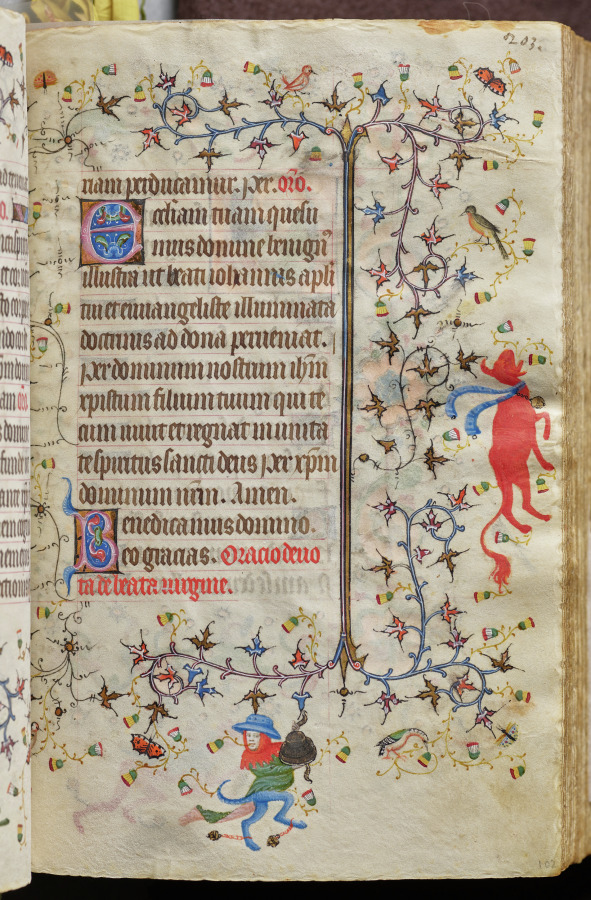 203.
nam perducamur. per. or̄o.
Ecclesiam tuam quesu
mus domine benign̄
illustra ut beati iohannis apl̄i
tui et euuangeliste illuminata
doctrinis ad dona perueniat.
per dominum nostrum ih̄m
xpistum filium tuum qui te
cum uiuit et regnat in unita
te spiritus sancti deus per xp̄m
dominum nr̄m. Amen.
Benedicamus domino.
eo gracias. Oracio deuo
ta de beata uirgine.
102